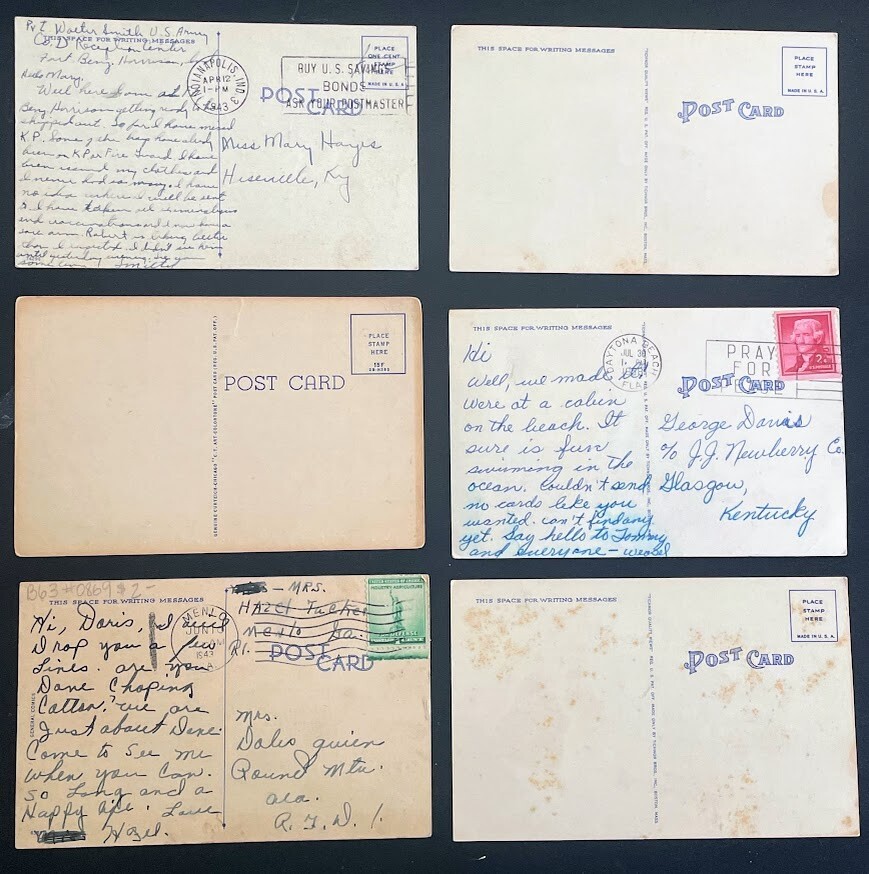 Pvt. Walter Smith U.S. Army
Co. D Reception Center
THIS SPACE FOR WRITING MESSAGES
Fort Benj. Harrison,
Hello Mary,
Well here I am at
Benj Harrison getting ready to be
shipped out. So far I have missed
K.P. Some of the boys have already
been on K.P. or Fire Guard. I have
been issued my clothes and
I never had so many. I have
no idea where I will be sent
and vaccinations and I now have a
sore arm. Robert is liking better
than I expected. I didn't see him
until yesterday evening.
INDIANAPOLIS, IND. 3
APR 12
1-PM
1943
BUY U.S. SAVINGS
BONDS
ASK YOUR POSTMASTER
PLACE
ONE CENT
STAMP
HERE
MADE IN U.S.A.
POST CARD
Miss Mary Hayes
Hiseville, Ky
THIS SPACE FOR WRITING MESSAGES
POST CARD
PLACE
STAMP
HERE
MADE IN U.S.A.
GENUINE CURTEICH-CHICAGO "C.T. ART-COLORTONE" POST CARD (REG. U.S. PAT. OFF.)
POST CARD
PLACE
STAMP
HERE
THIS SPACE FOR WRITING MESSAGES
Hi
Well, we made it.
Were at a cabin
on the beach. It
sure is fun
swimming in the
ocean. Couldn't send
no cards like you
wanted. can't find any
yet. Say hello to Tommy
and everyone-
DAYTONA BEACH
JUL 30
FLA.
PRAY
FOR
POST CARD
2¢
George Davis
c/o J.J. Newberry Co.
Glasgow,
Kentucky
B63 #0869 $2-
THIS SPACE FOR WRITING MESSAGES
Hi, Doris, I will
Drop you a few
Lines. are you
Done Choping
Cotton? we are
Just about Done.
Come to See me
when you Can.
So Long and a
Happy
Love
Hazel.
MENLO
JUN 13
1943
GA.
- MRS.
Hazel Tucker
Menlo Ga.
R1.
POST CARD
Mrs.
Round Mtn.
ala.
R.F.D. 1.
THIS SPACE FOR WRITING MESSAGES
POST CARD
PLACE
STAMP
HERE
MADE IN U.S.A.